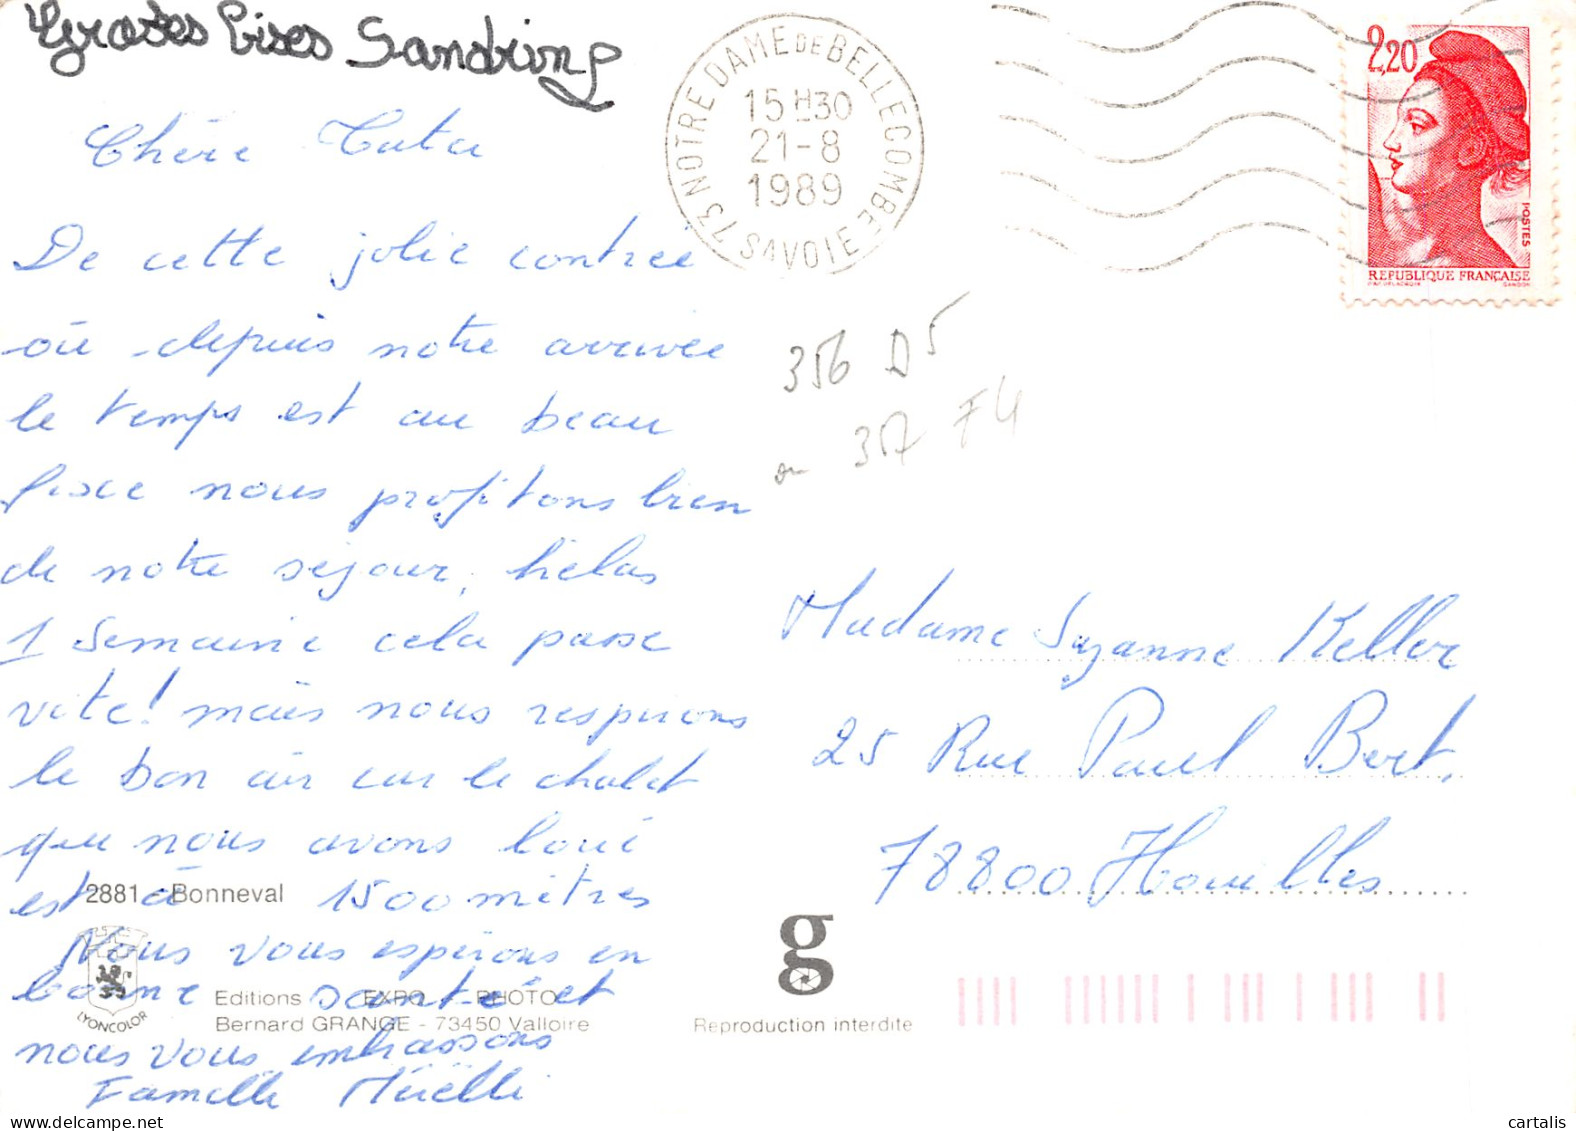 Grosses bises Sandrine
Chère Tata
De cette jolie contrée
où depuis notre arrivée
le temps est au beau
fixe nous profitons bien
de notre séjour, hélas
1 semaine cela passe
vite! mais nous respirons
le bon air car le chalet
que nous avons loué
est à 1500 mètres
Nous vous espérons en
bonne santé et
nous vous embrassons
Famille
73 NOTRE DAME DE BELLECOMBE
SAVOIE
15 H30
21-8
1989
2,20
POSTES
REPUBLIQUE FRANÇAISE
GANDON
356 D5
ou 357 F4
Madame Suzanne Keller
25 Rue Paul Bert.
78800 Houilles
2881 - Bonneval
LYONCOLOR
Editions EXPO - PHOTO
Bernard GRANGE - 73450 Valloire
g
Reproduction interdite
cartalis